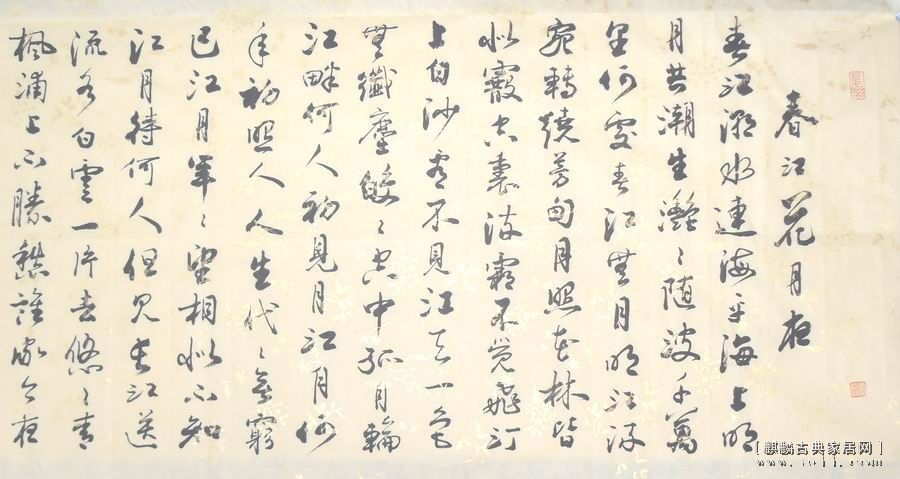 春江花月夜
春江潮水連海平海上明
月共潮生灩〻随波千萬
里何處春江無月明江流
宛轉繞芳甸月照花林皆
似霰空裏流霜不覺飛汀
上白沙看不見江天一色
無纖塵皎〻空中孤月輪
江畔何人初見月江月何
年初照人人生代〻無窮
已江月年〻望相似不知
江月待何人但見長江送
流水白雲一片去悠〻青
楓浦上不勝愁誰家今夜
[麒麟古典家居网]